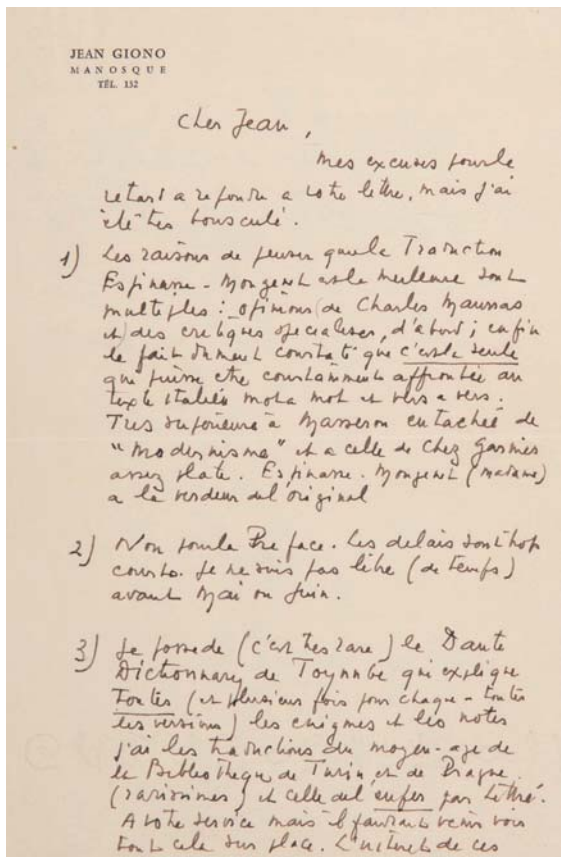 JEAN GIONO
MANOSQUE
TÉL. 152
Cher Jean,
Mes excuses pour le
retard a repondre a votre lettre, mais j'ai
été tres bousculé.
1) Les raisons de penser que la Traduction
Espinasse-Mongenet est la meilleure sont
multiples : opinions (de Charles Maurras
et) des critiques specialisés, d'abord ; enfin
le fait dument constaté que c'est la seule
qui puisse etre constamment affrontée au
texte Italien mot a mot et vers a vers.
Tres superieure à Masseron entachée de
"modernisme" et a celle de chez Garnier
assez plate. Espinasse-Mongenet (madame)
a la verdeur de l'original
2) Non pour la Preface. Les delais sont trop
courts. Je ne suis pas libre (de temps)
avant Mai ou Juin.
3) Je possede (c'est tres rare) le Dante
Dictionnary de Toynnbe qui explique
Toutes (et plusieurs fois pour chaque - toutes
les versions) les enigmes et les notes
j'ai les traductions du moyen-age de
la Bibliotheque de Turin et de Prague
(rarissimes) et celle de l'enfer par Littré.
A votre service mais il faudrait venir voir
tout cela sur place. L'interet de ces